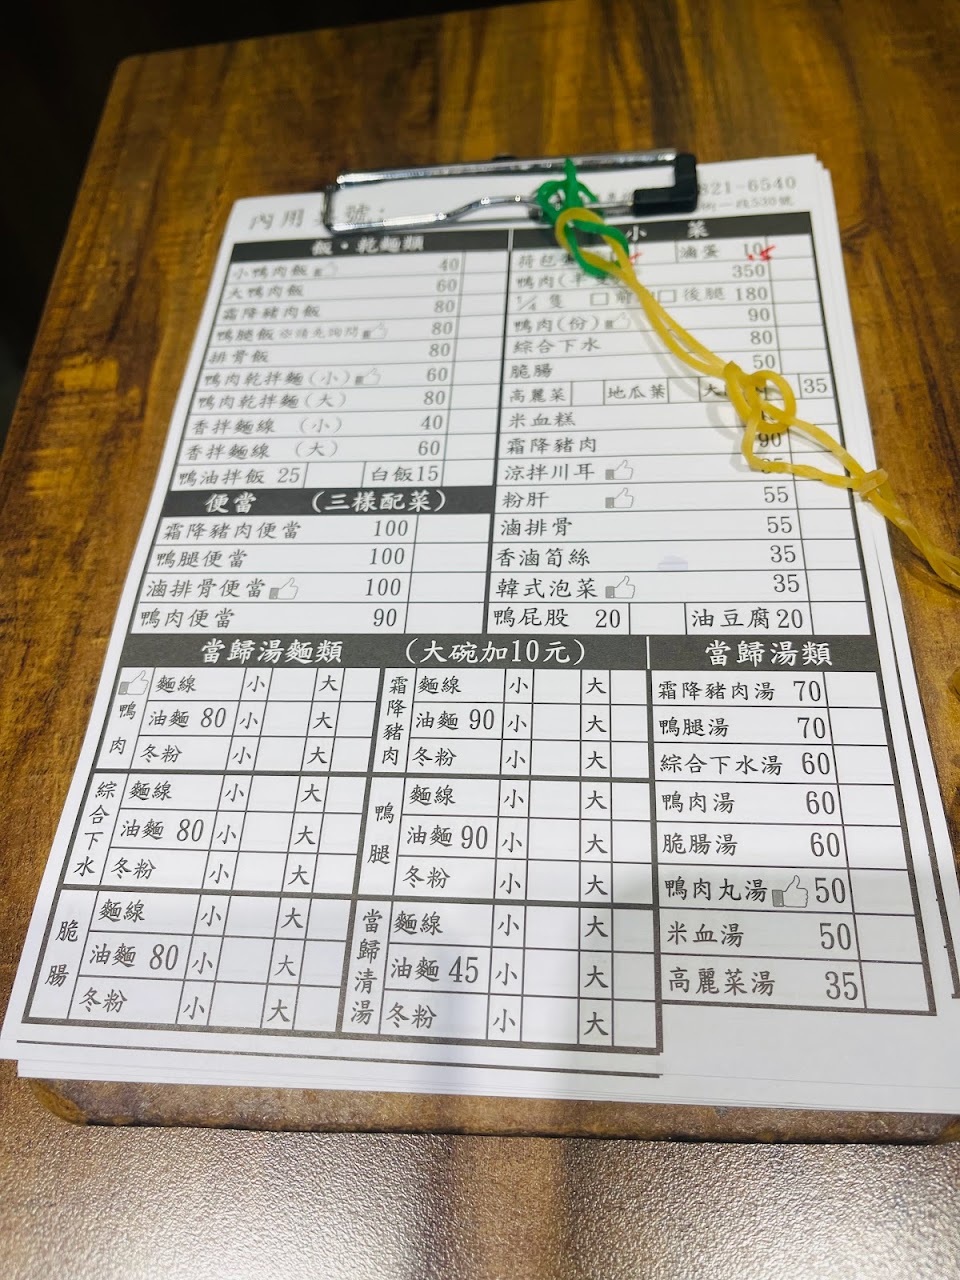 內用桌號:
821-6540
一段530號
飯・乾麵類
小鴨肉飯 40
大鴨肉飯 60
霜降豬肉飯 80
鴨腿飯 ※請先詢問 80
排骨飯 80
鴨肉乾拌麵(小) 60
鴨肉乾拌麵(大) 80
香拌麵線 (小) 40
香拌麵線 (大) 60
鴨油拌飯 25 白飯15
便當 (三樣配菜)
霜降豬肉便當 100
鴨腿便當 100
滷排骨便當 100
鴨肉便當 90
小 菜
荷包蛋 滷蛋 10
鴨肉(半隻) 350
1/4 隻 □前 □後腿 180
鴨肉(份) 90
綜合下水 80
脆腸 50
高麗菜 地瓜葉 大 35
米血糕
霜降豬肉 90
涼拌川耳
粉肝 55
滷排骨 55
香滷筍絲 35
韓式泡菜 35
鴨屁股 20 油豆腐20
當歸湯麵類 (大碗加10元)
鴨肉
麵線 小 大
油麵 80 小 大
冬粉 小 大
霜降豬肉
麵線 小 大
油麵 90 小 大
冬粉 小 大
綜合下水
麵線 小 大
油麵 80 小 大
冬粉 小 大
鴨腿
麵線 小 大
油麵 90 小 大
冬粉 小 大
脆腸
麵線 小 大
油麵 80 小 大
冬粉 小 大
當歸清湯
麵線 小 大
油麵 45 小 大
冬粉 小 大
當歸湯類
霜降豬肉湯 70
鴨腿湯 70
綜合下水湯 60
鴨肉湯 60
脆腸湯 60
鴨肉丸湯 50
米血湯 50
高麗菜湯 35